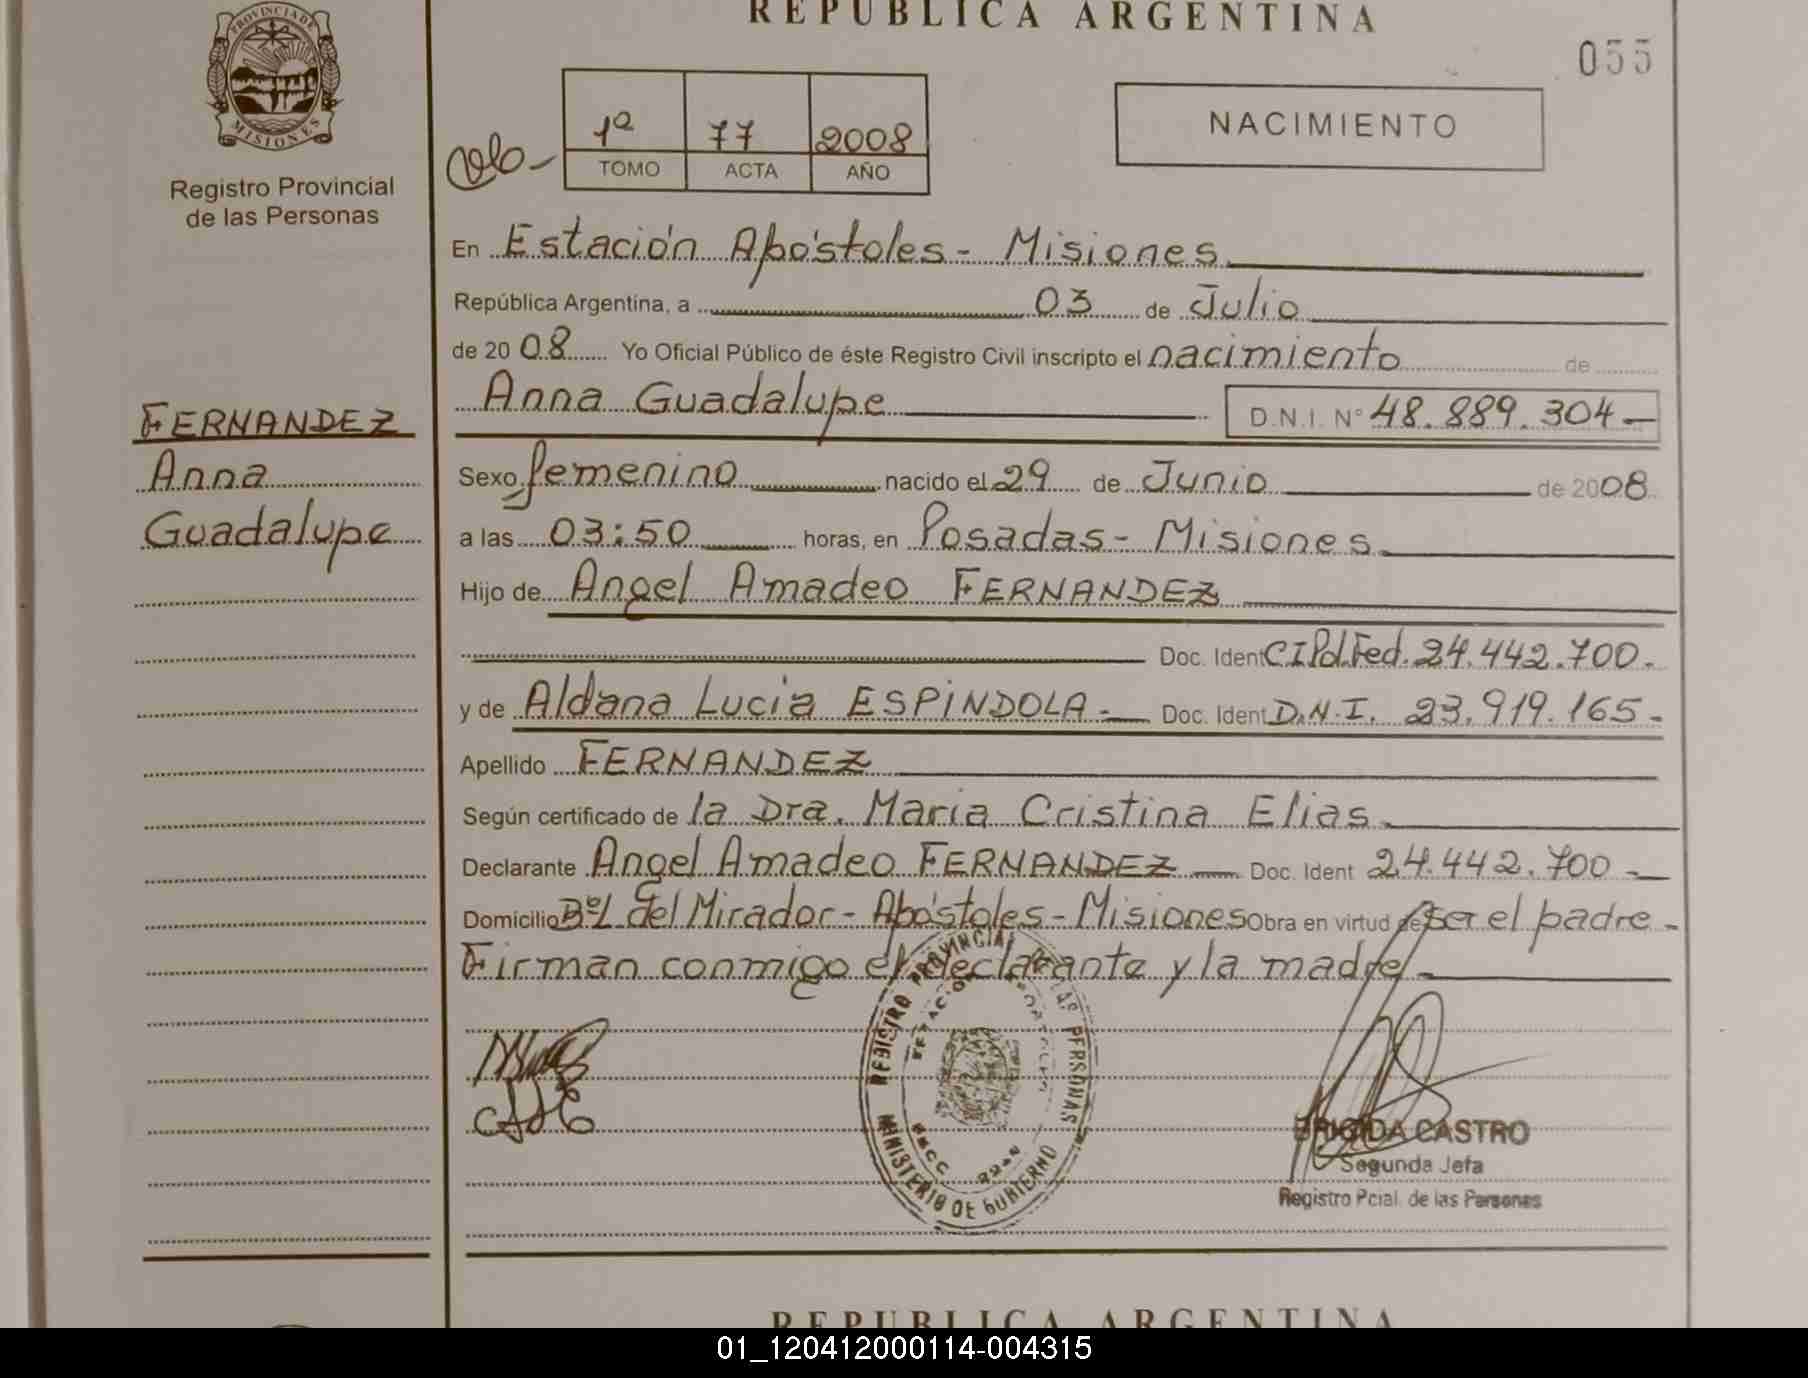 REPUBLICA ARGENTINA
055
PROVINCIA DE
MISIONES
Registro Provincial
de las Personas
1º 77 2008
TOMO ACTA AÑO
NACIMIENTO
En Estación Apóstoles - Misiones
República Argentina, a 03 de Julio
de 20 08 Yo Oficial Público de éste Registro Civil inscripto el nacimiento de
Anna Guadalupe D.N.I. Nº 48.889.304 -
FERNANDEZ
Anna
Guadalupe
Sexo femenino nacido el 29 de Junio de 2008
a las 03:50 horas, en Posadas - Misiones
Hijo de Angel Amadeo FERNANDEZ
Doc. Ident CIPol.Fed. 24.442.700.
y de Aldana Lucia ESPINDOLA - Doc. Ident D.N.I. 23.919.165 -
Apellido FERNANDEZ
Según certificado de la Dra. Maria Cristina Elias
Declarante Angel Amadeo FERNANDEZ - Doc. Ident 24.442.700 -
Domicilio Bº L. del Mirador - Apóstoles - Misiones Obra en virtud de ser el padre -
Firman conmigo el declarante y la madre -
REGISTRO PROVINCIAL DE LAS PERSONAS
MINISTERIO DE GOBIERNO
BRIGIDA CASTRO
Segunda Jefa
Registro Pcial. de las Personas
REPUBLICA ARGENTINA
01_120412000114-004315